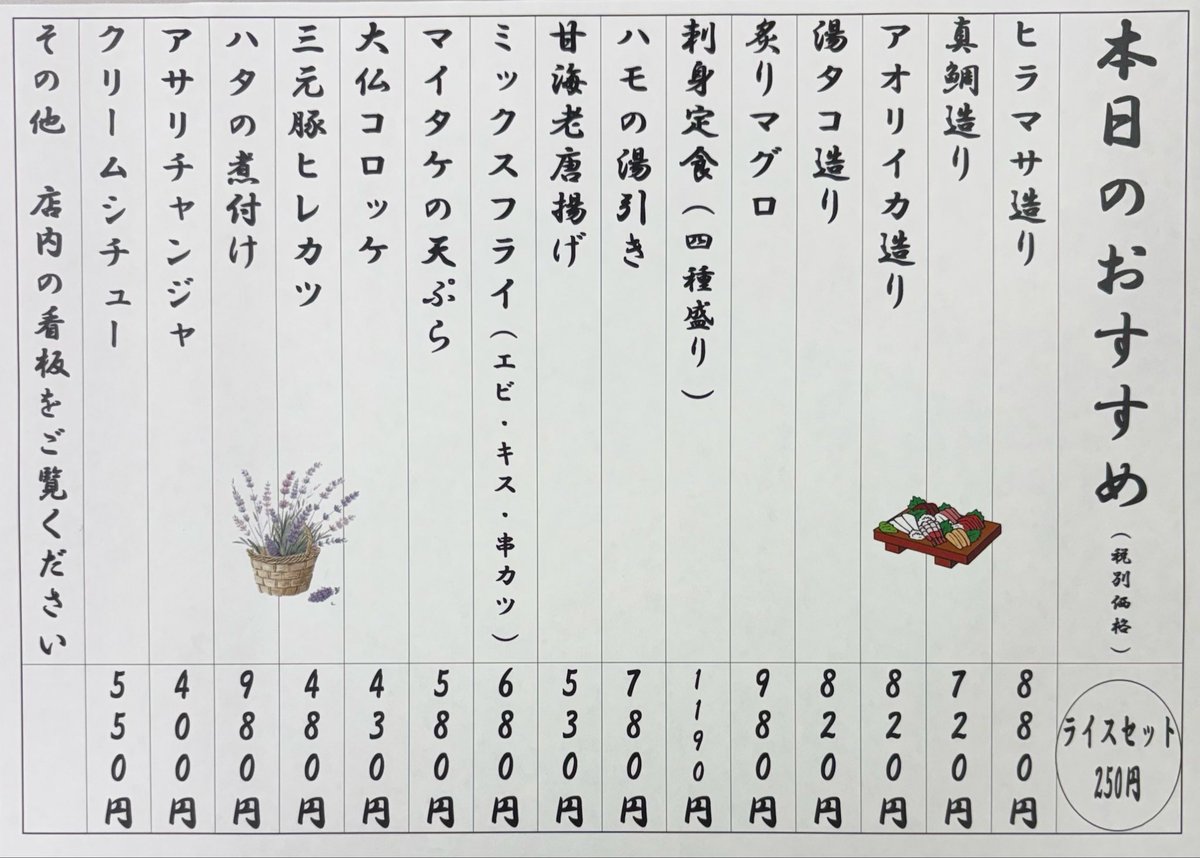 本日のおすすめ（税別価格）
ライスセット
250円
ヒラマサ造り 880円
真鯛造り 720円
アオリイカ造り 820円
湯タコ造り 820円
炙りマグロ 980円
刺身定食（四種盛り） 1190円
ハモの湯引き 780円
甘海老唐揚げ 530円
ミックスフライ（エビ・キス・串カツ） 680円
マイタケの天ぷら 580円
大仏コロッケ 430円
三元豚ヒレカツ 480円
ハタの煮付け 980円
アサリチャンジャ 400円
クリームシチュー 550円
その他 店内の看板をご覧ください